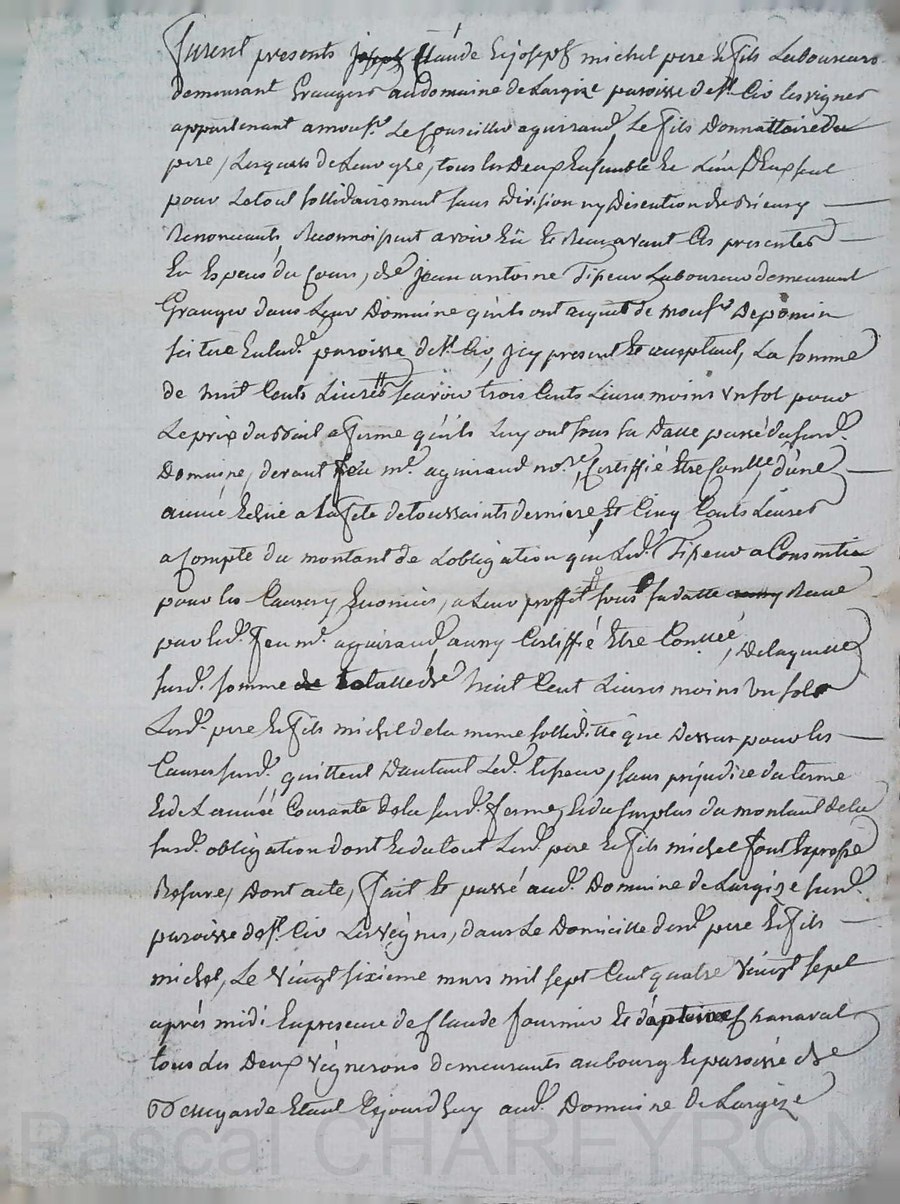 furent presents joseph Claude Et joseph michel pere Et fils Laboureurs
demeurant Grangers au domaine de Largize paroisse de st. Cir les vignes
appartenant a monsr. Le Conseiller aguiraud, Le fils Donnattaire du
pere, Lesquels de Leur gré, tous les Deux Ensemble Et L'un d'Eux seul
pour Le tout sollidairement sans Division ny Discution de
Renoncants Reconnoissent avoir Eü Et Receu avant Ces presentes
En Especes du Cours, de jean antoine Tipeur Laboureur demeurant
Granger dans Leur Domaine qu'ils ont acquit de monsr. Depomin
scitué En lade. paroisse de st. Cir, jcy present Et acceptant, La somme
de huit Cents Livres sçavoir trois Cents Livres moins un sol pour
Le prix du Bail a ferme qu'ils Luy ont sous sa Datte passé du surd.
Domaine, devant feu me. aguiraud nore. Certiffié Etre Conllé, d'une
année Echüe a la fete de toussaints derniere, Et Cinq Cents Livres
a Compte du montant de Lobligation que Led. Tipeur a Consentie
pour les Causes y Enoncées, a Leur proffit sous sa datte Receue
par led. feu me. aguiraud, aussy Certiffié Etre Conllée, De laquelle
surd. somme totalle de huit Cent Livres moins Un sol
Lesd. pere Et fils michel de la meme solliditté que Dessus pour les
Causes surd. quittent D'autant Led. tipeur, sans préjudice du terme
Et de L'année Courante de la surd. ferme, Et du surplus du montant de la
surd. obligation dont Et du tout Lesd. pere Et fils michel font Expresse
Reserve, Dont acte, fait Et passé aud. Domaine de Largize surd.
paroisse de st. Cir Les Vignes, dans Le Domicille desd. pere Et fils
michel, Le Vingt sixieme mars mil sept Cent quatre Vingt sept
après midi En presence de Claude fournier Et d'antoine Chanaval
tous Les Deux Vignerons demeurants au bourg Et paroisse de
Bellegarde Etant Cejourd'huy aud. Domaine de Largize
Rascal CHAREYRON